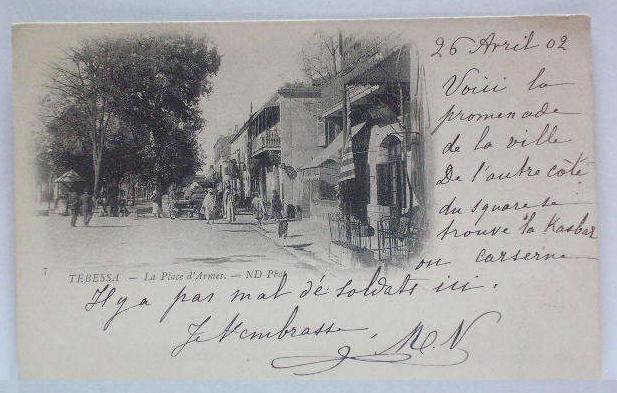 26 Avril 02
Voici la
promenade
de la ville
De l'autre côté
du square se
trouve la Kasbar
ou carserne
7 TEBESSA — La Place d'Armes. — ND Phot
Il y a pas mal de soldats ici.
Je t'embrasse,
M. N